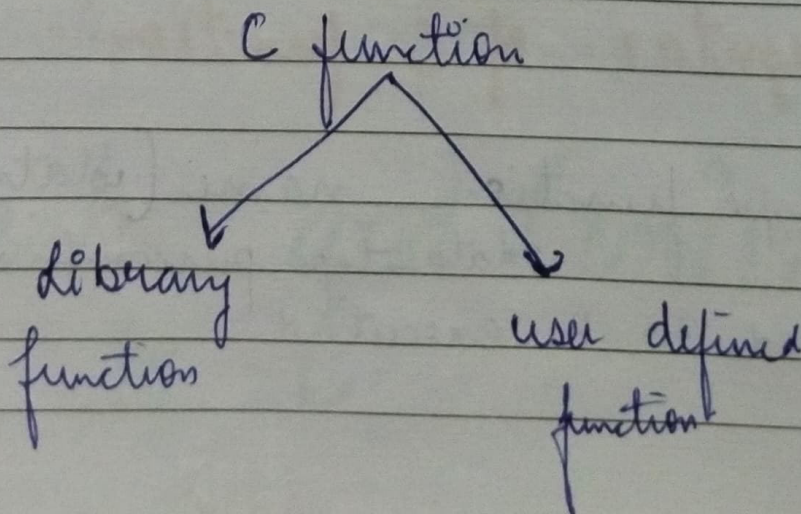 C function
Library
function
user defined
function